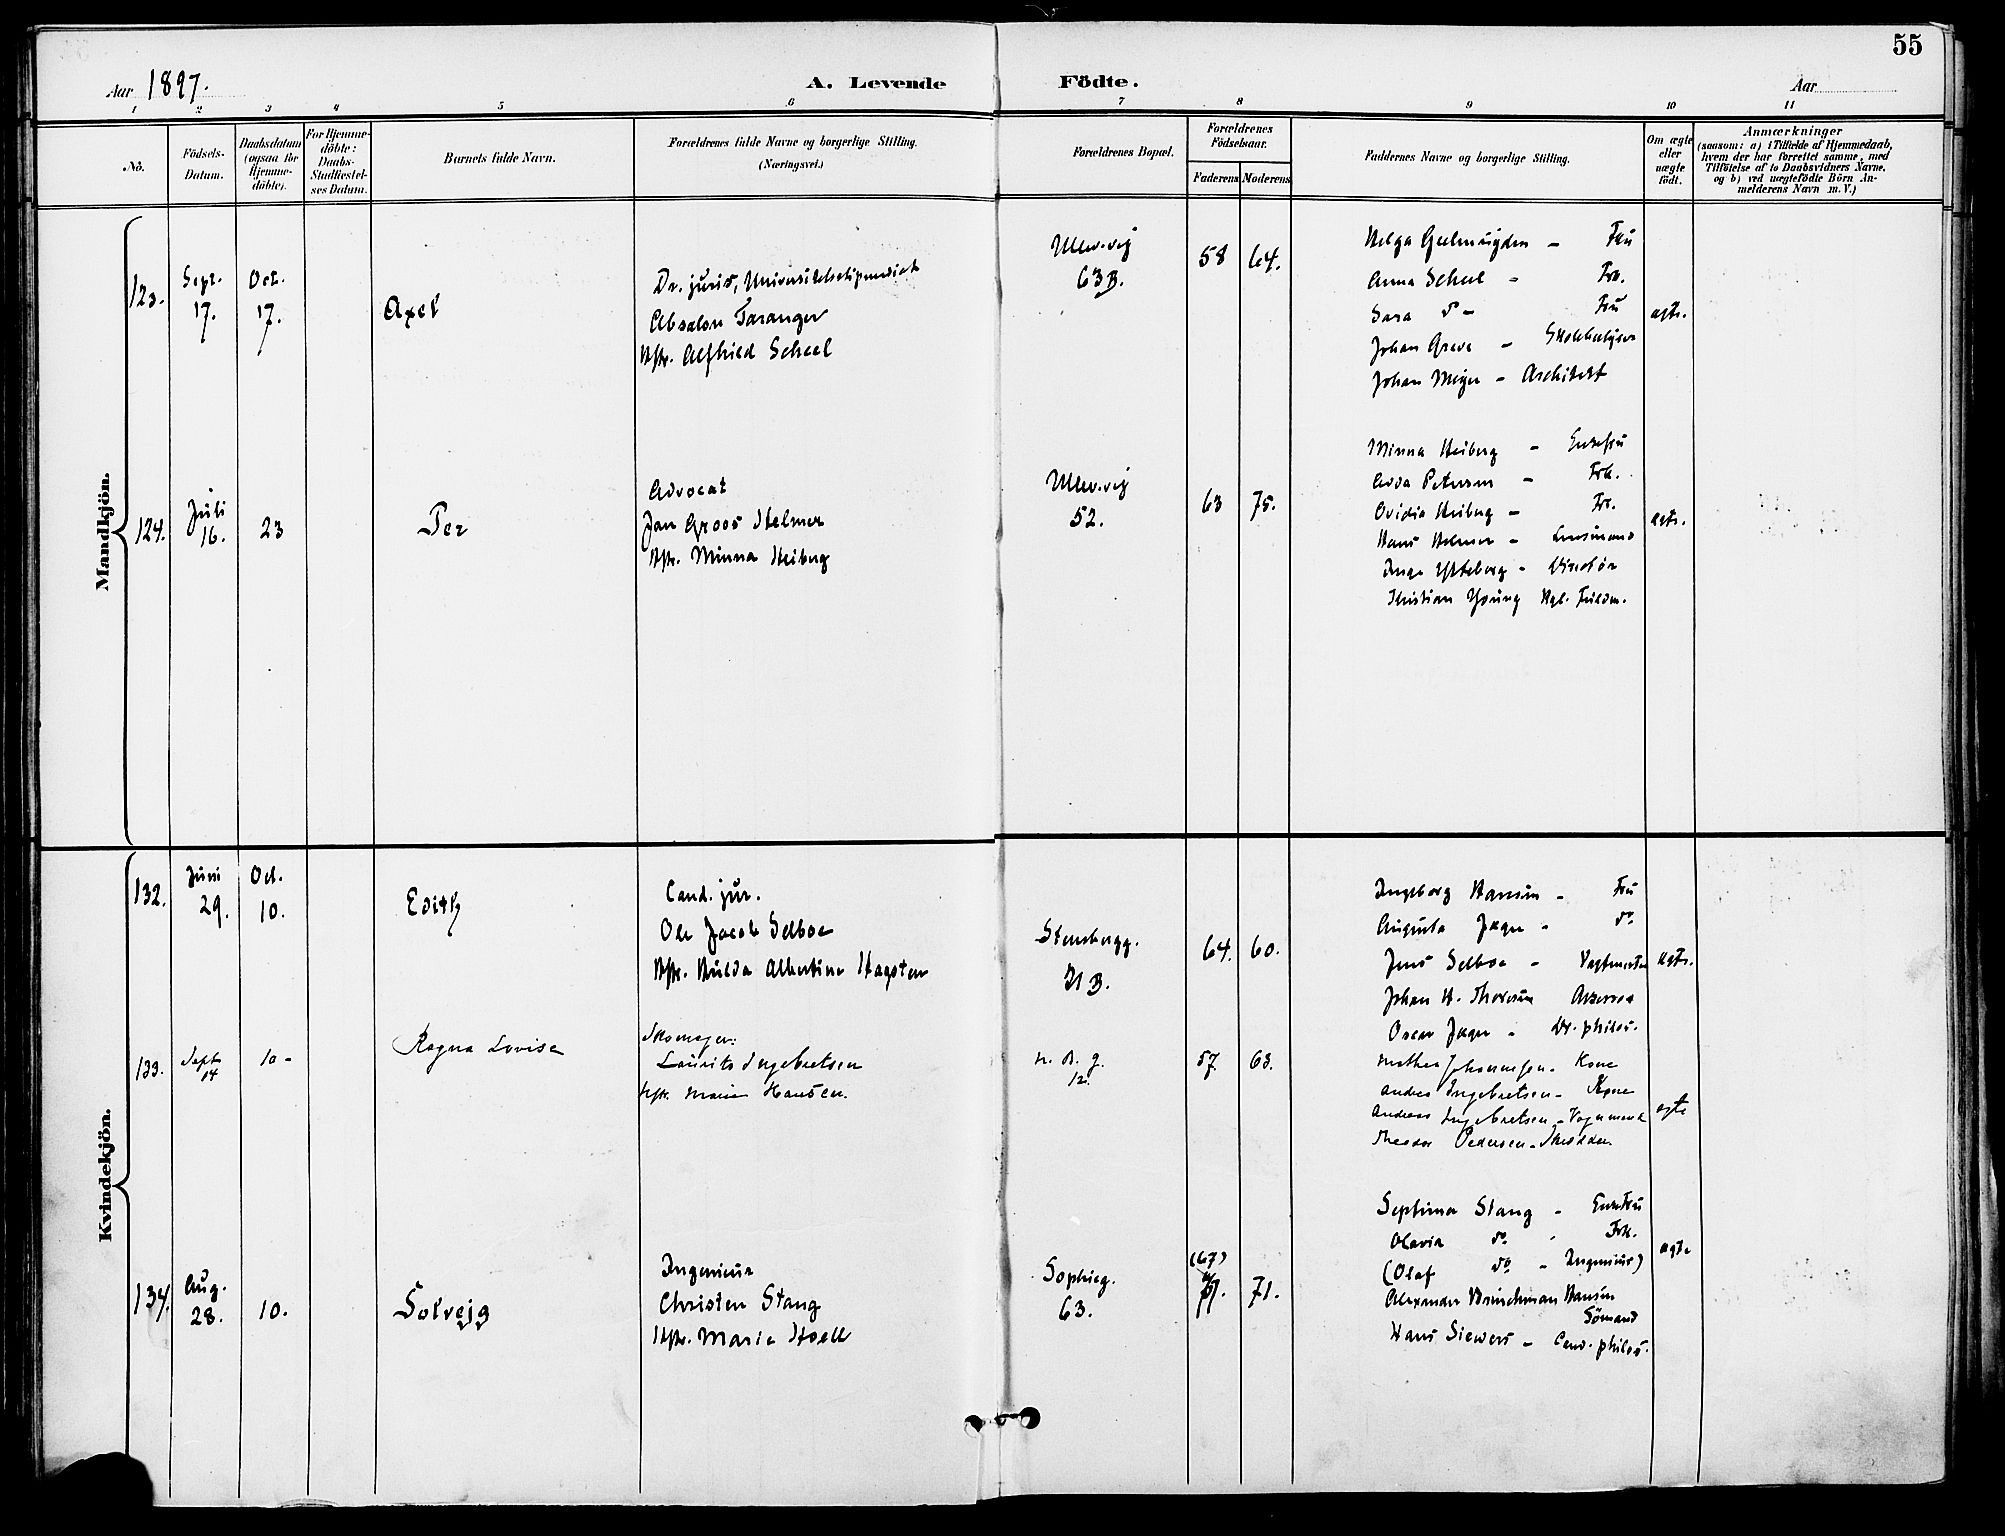 55
Aar 1897.
A. Levende Födte.
Aar
1 2 3 4 5 6 7 8 9 10 11
No.
Födsels-
Datum.
Daabsdatum
(ogsaa for
Hjemme-
döbte).
For Hjemme-
döbte:
Daabs-
Stadfæstel-
ses Datum.
Barnets fulde Navn.
Forældrenes fulde Navne og borgerlige Stilling.
(Næringsvei.)
Forældrenes Bopæl.
Forældrenes
Födselsaar.
Faderens Moderens
Faddernes Navne og borgerlige Stilling.
Om ægte
eller
uægte
födt.
Anmærkninger
(saasom: a) i Tilfælde af Hjemmedaab,
hvem der har forrettet samme, med
Tilföielse af to Daabsvidners Navne,
og b) ved uægtefödte Börn An-
melderens Navn m. V.)
Mandkjön.
123.
Sept.
17.
Oct.
17.
Axel
Dr. juris, Universitetsstipendiat
Absalon Taranger
Hstr. Alfhild Scheel
Ullev.vej
63B.
58 64.
Helga Geelmuyden - Fru
Anna Scheel - Frk.
Sara do - Fru
Johan Greve - Skolebestyrer
Johan Meyer - Architekt
ægte.
124.
Juli
16.
23
Per
Advocat
Jan Groos Helmer
Hstr. Minna Heiberg
Ullev.vej
52.
63 75.
Minna Heiberg - Enkefru
Adda Petersen - Frk.
Ovidia Heiberg - Fr.
Hans Helmer - Lensmand
Inge Ytteberg - Direktör
Christian Young Kgl. Fuldm.
ægte.
Kvindekjön.
132.
Juni
29.
Oct.
10.
Edith
Cand. jur.
Ole Jacob Selboe
Hstr. Hulda Albertine Hagsten
Stensbergg.
21 B.
64. 60.
Ingeborg Hansen - Fru
Augusta Jæger - do
Jens Selboe - Vagtmester
Johan H. Thoresen
Oscar Jæger - Dr. philos.
ægte.
133.
Sept
14
10 -
Ragna Lovise
Skomager:
Laurits Ingebretsen
Hstr. Marie Hansen.
12.
57. 63.
Mathea Johannesen - Kone
Andrea Ingebretsen - Kone
Andreas Ingebretsen - Vognmand
Theodor Pedersen - Skrædder
ægte
134.
Aug.
28.
10.
Solvejg
Ingeniør
Christen Stang
Hstr. Marie Hoell
Sophieg.
63.
(67)
71.
Septima Stang - Enkefru
Olavia do - Frk.
(Olaf do - Ingeniør)
Alexander Brinchman Hansen
Sömand
Hans Siewers - Cand. philos.
ægte